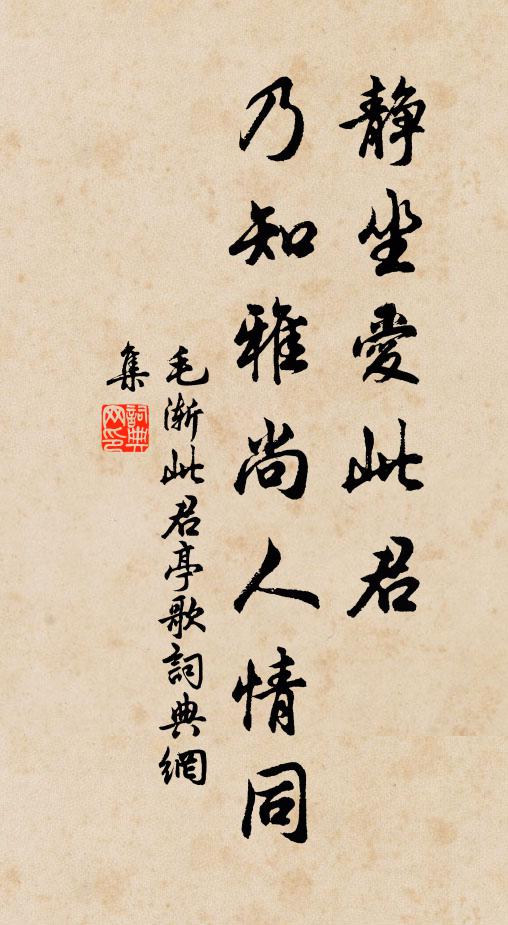 静坐愛此君
乃知雅尚人情同
毛漸此君亭歌詞典網
集
詞典
网印